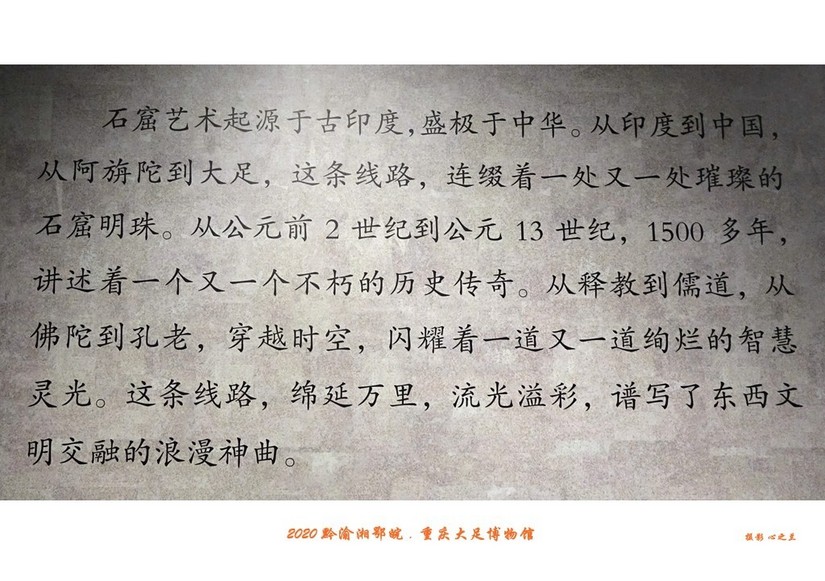 石窟艺术起源于古印度，盛极于中华。从印度到中国，
从阿旃陀到大足，这条线路，连缀着一处又一处璀璨的
石窟明珠。从公元前 2 世纪到公元 13 世纪，1500 多年，
讲述着一个又一个不朽的历史传奇。从释教到儒道，从
佛陀到孔老，穿越时空，闪耀着一道又一道绚烂的智慧
灵光。这条线路，绵延万里，流光溢彩，谱写了东西文
明交融的浪漫神曲。
2020 黔渝湘鄂皖 . 重庆大足博物馆
摄影 心之兰